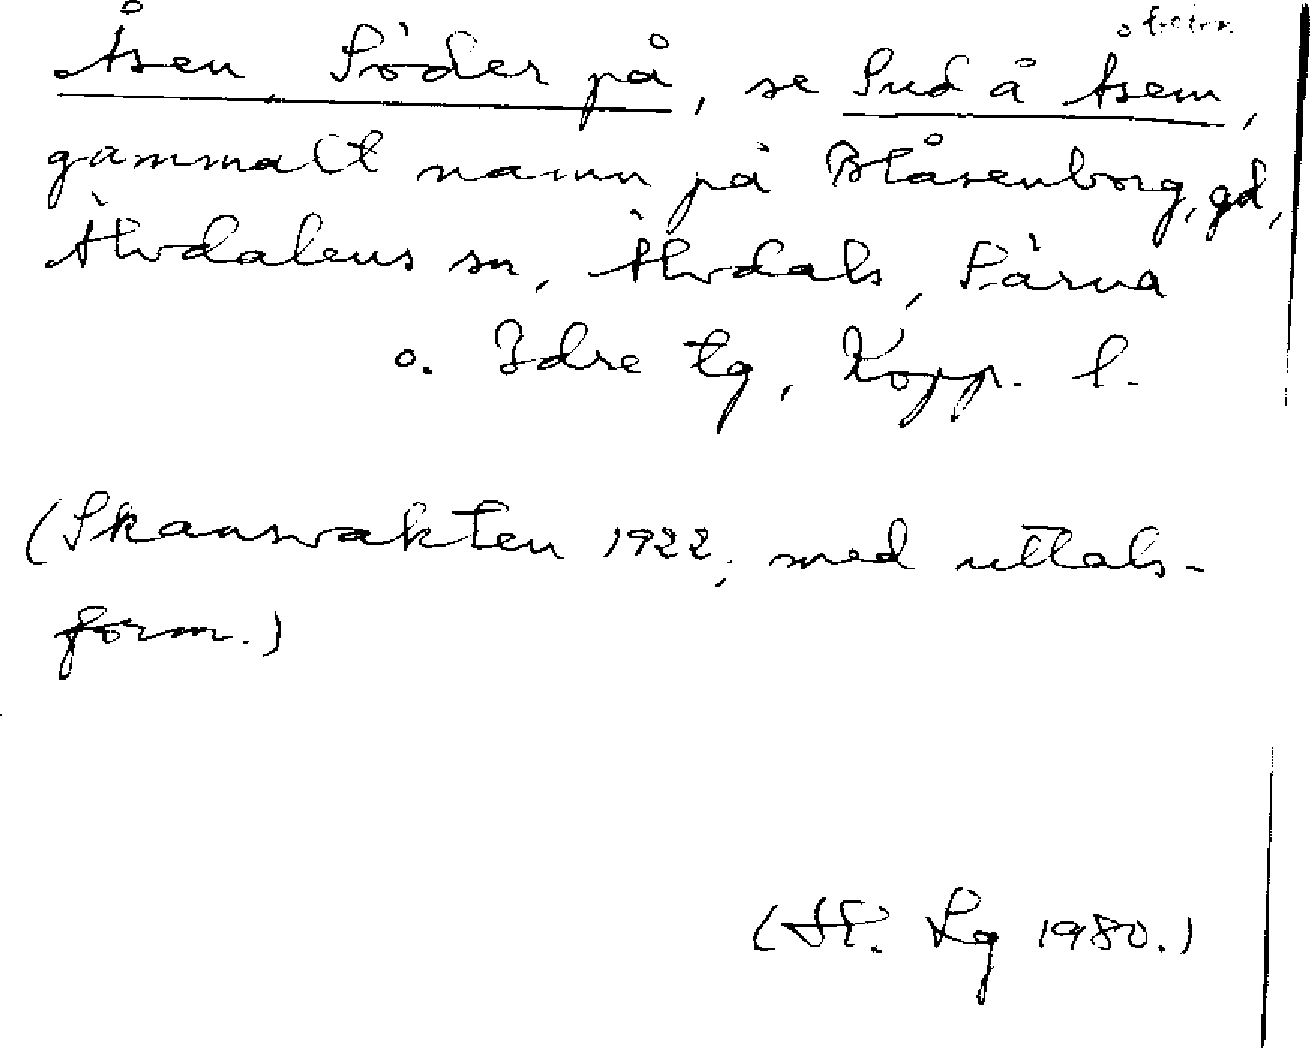 Åsen, Söder på, se Sud å Åsem,
gammalt namn på Blåsenborg, gd,
Älvdalens sn, Älvdals, Särna
o. Idre tg, Kopp. l.
(Skansvakten 1922, med uttals-
form.)
Lg 1980.)